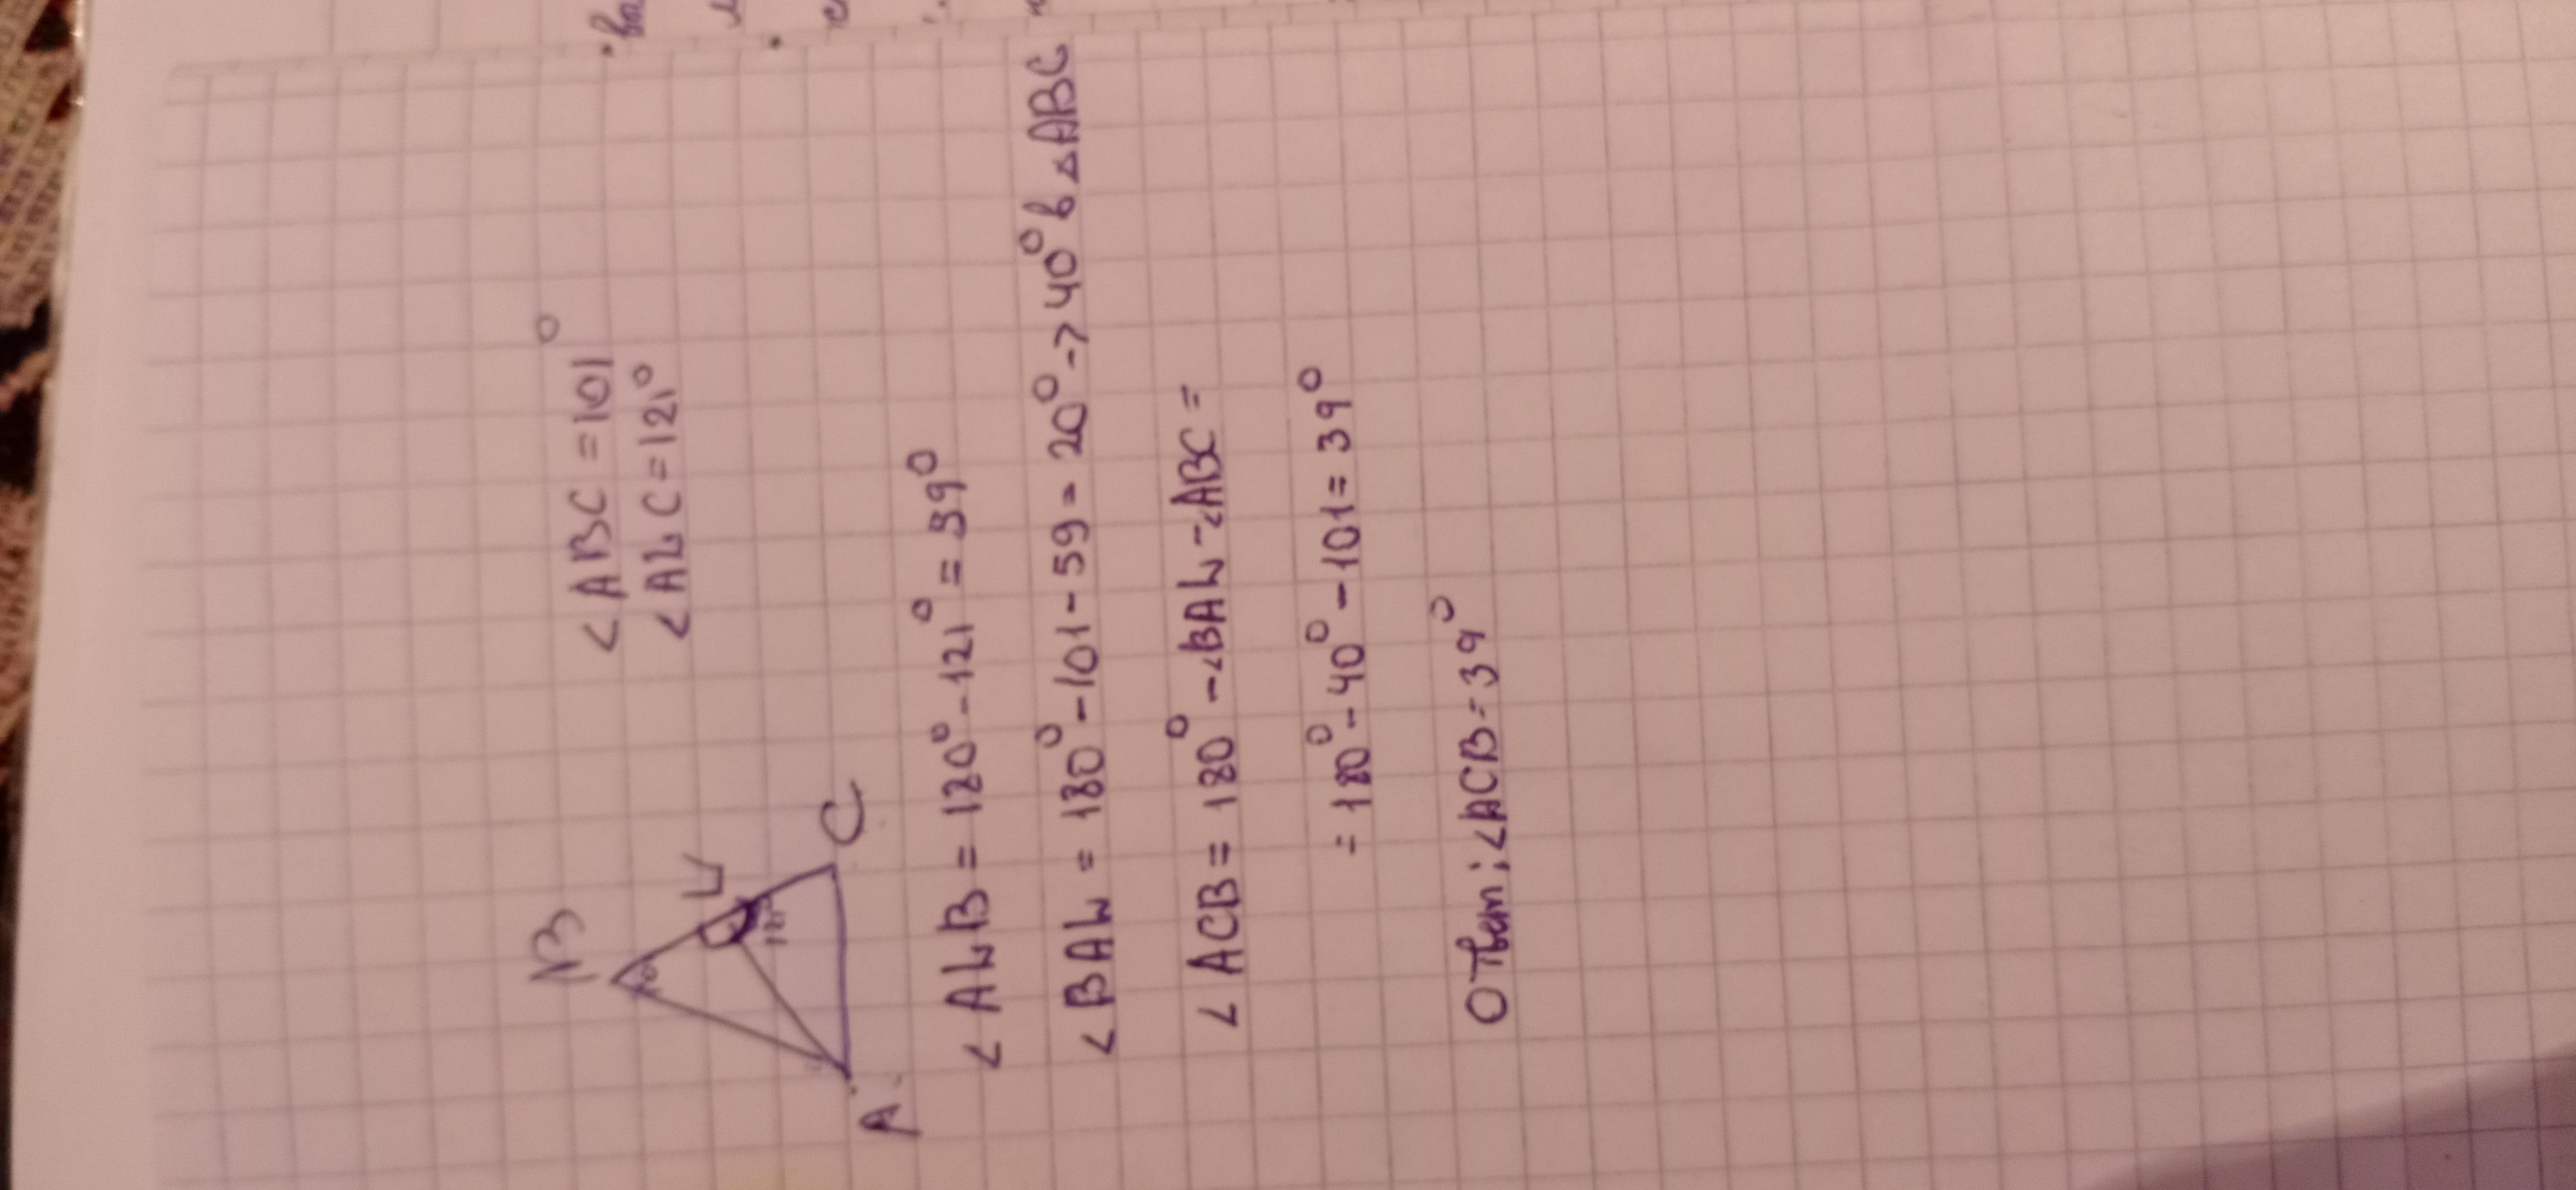 B
L
121°
A
C
∠ABC=101°
∠ALC=121°
∠ALB=180°-121°=59°
∠BAL=180°-101-59=20°->40° в △ABC
∠ACB=180°-∠BAL-∠ABC=
=180°-40°-101=39°
Ответ: ∠ACB=39°